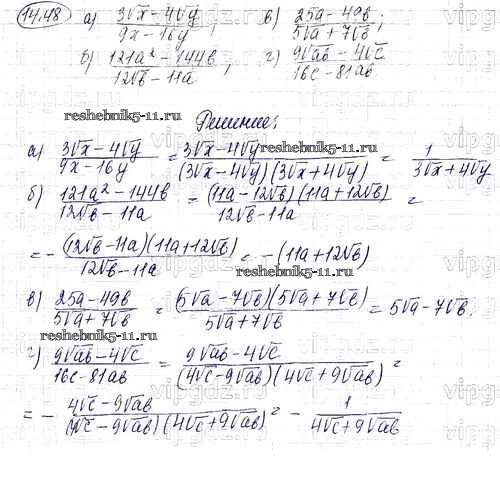 14.48 а) (3√x - 4√y)/(9x - 16y); в) (25a - 49в)/(5√a + 7√в);
б) (121a² - 144в)/(12√в - 11a); г) (9√aв - 4√c)/(16c - 81aв)
reshebnik5-11.ru
Решение:
а) (3√x - 4√y)/(9x - 16y) = (3√x - 4√y)/((3√x - 4√y)(3√x + 4√y)) = 1/(3√x + 4√y)
reshebnik5-11.ru
б) (121a² - 144в)/(12√в - 11a) = ((11a - 12√в)(11a + 12√в))/(12√в - 11a) =
= - ((12√в - 11a)(11a + 12√в))/(12√в - 11a) = - (11a + 12√в)
reshebnik5-11.ru
в) (25a - 49в)/(5√a + 7√в) = ((5√a - 7√в)(5√a + 7√в))/(5√a + 7√в) = 5√a - 7√в.
reshebnik5-11.ru
г) (9√aв - 4√c)/(16c - 81aв) = (9√aв - 4√c)/((4√c - 9√aв)(4√c + 9√aв)) =
= - (4√c - 9√aв)/((4√c - 9√aв)(4√c + 9√aв)) = - 1/(4√c + 9√aв)